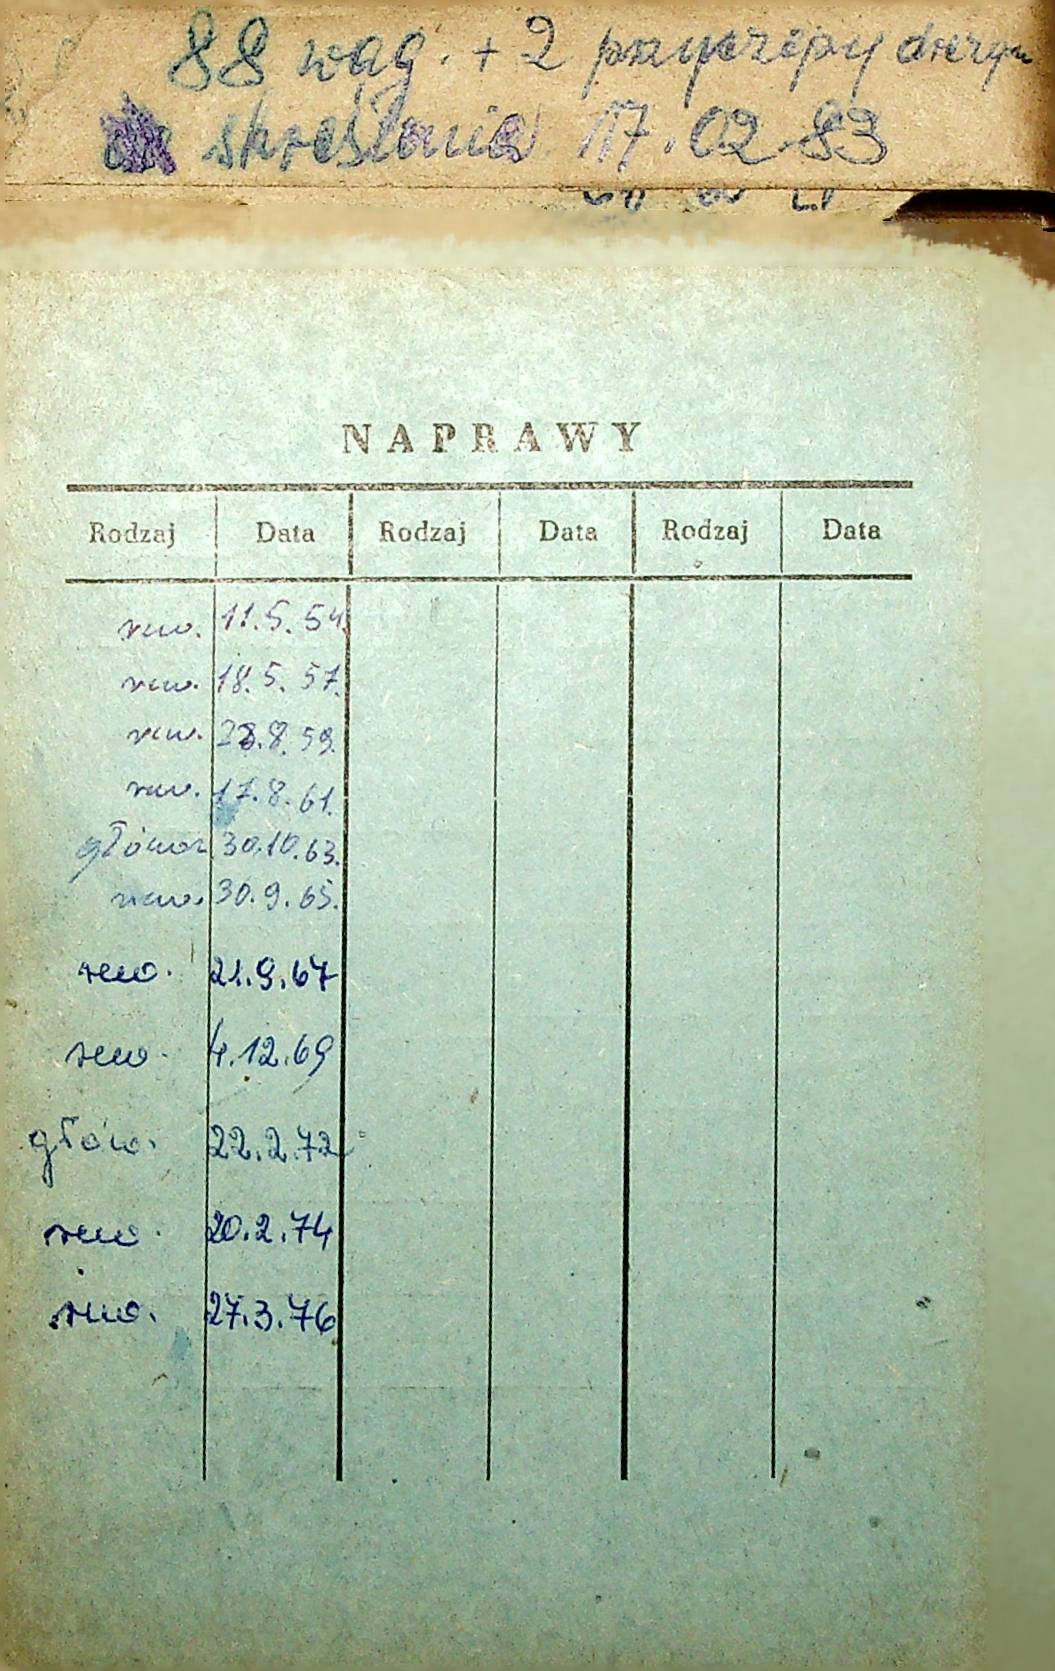 88 wag. + 2 przyczepy drezyn
skreślenia 17.02.83
NAPRAWY
Rodzaj Data Rodzaj Data Rodzaj Data
rew. 11.5.54.
rew. 18.5.57.
rew. 8.59.
rew. 17.8.61.
główna 30.10.63.
rew. 30.9.65.
rew. 21.9.67
rew. 4.12.69
głów. 22.2.72
rew. 20.2.74
rew. 27.3.76